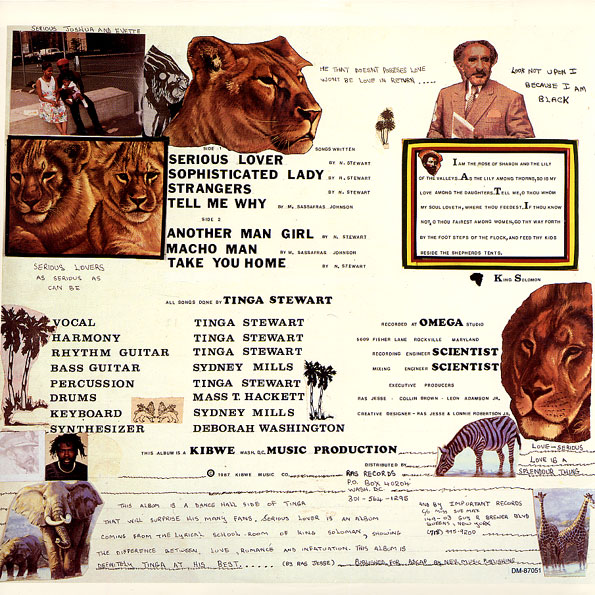 SERIOUS JOSHUA AND EVETTE
HE THAT DOESN'T POSSESS LOVE
WON'T BE LOVE IN RETURN.....
LOOK NOT UPON I
BECAUSE I AM
BLACK
SIDE 1
SONGS WRITTEN
SERIOUS LOVER BY N. STEWART
SOPHISTICATED LADY BY R. STEWART
STRANGERS BY N. STEWART
TELL ME WHY BY M. SASSAFRAS JOHNSON
SIDE 2
ANOTHER MAN GIRL BY N. STEWART
MACHO MAN BY M. SASSAFRAS JOHNSON
TAKE YOU HOME BY N. STEWART
I AM THE ROSE OF SHARON AND THE LILY
OF THE VALLEYS. AS THE LILY AMONG THORNS, SO IS MY
LOVE AMONG THE DAUGHTERS. TELL ME, O THOU WHOM
MY SOUL LOVETH, WHERE THOU FEEDEST. IF THOU KNOW
NOT, O THOU FAIREST AMONG WOMEN, GO THY WAY FORTH
BY THE FOOT STEPS OF THE FLOCK, AND FEED THY KIDS
BESIDE THE SHEPHERDS TENTS.
KING SOLOMON
SERIOUS LOVERS
AS SERIOUS AS
CAN BE
ALL SONGS DONE BY TINGA STEWART
VOCAL TINGA STEWART
HARMONY TINGA STEWART
RHYTHM GUITAR TINGA STEWART
BASS GUITAR SYDNEY MILLS
PERCUSSION TINGA STEWART
DRUMS MASS T. HACKETT
KEYBOARD SYDNEY MILLS
SYNTHESIZER DEBORAH WASHINGTON
RECORDED AT OMEGA STUDIO
5609 FISHER LANE ROCKVILLE MARYLAND
RECORDING ENGINEER SCIENTIST
MIXING ENGINEER SCIENTIST
EXECUTIVE PRODUCERS
RAS JESSE - COLLIN BROWN - LEON ADAMSON JR.
CREATIVE DESIGNER - RAS JESSE & LONNIE ROBERTSON JR.
THIS ALBUM IS A KIBWE WASH, DC. MUSIC PRODUCTION
℗ 1987 KIBWE MUSIC CO.
DISTRIBUTED BY
RAS RECORDS
P.O. BOX 40204
WASH. DC
301-564-1295
LOVE-SERIOUS
LOVE IS A
SPLENDOUR THING
THIS ALBUM IS A DANCE HALL SIDE OF TINGA
THAT WILL SURPRISE HIS MANY FANS, SERIOUS LOVER IS AN ALBUM
COMING FROM THE LYRICAL SCHOOL-ROOM OF KING SOLOMAN, SHOWING
THE DIFFERENCE BETWEEN, LOVE ROMANCE AND INFATUATION. THIS ALBUM IS
DEFINITELY TINGA AT HIS BEST..... (BY RAS JESSE)
AND BY IMPORTANT RECORDS
QUEENS, NEW YORK
(718) 995-9200
PUBLISHED FOR ASCAP BY
MUSIC PUBLISHING
DM-87051